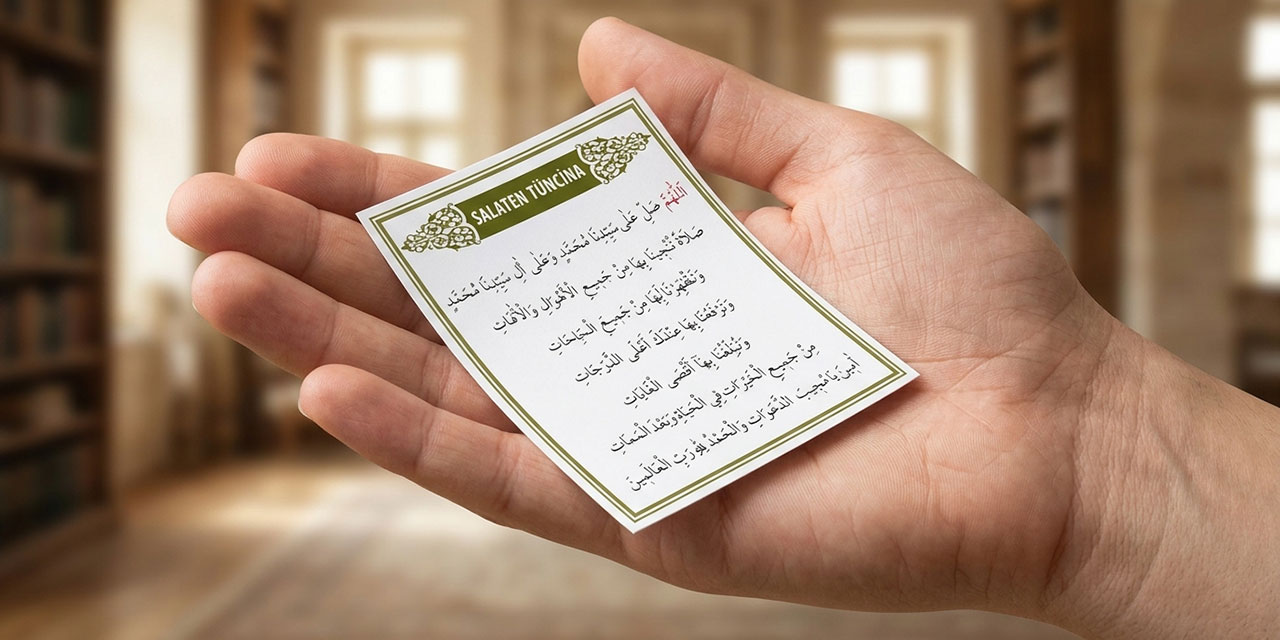 SALATEN TÜNCİNA
اَللّٰهُمَّ صَلِّ عَلٰى سَيِّدِنَا مُحَمَّدٍ وَعَلٰى اٰلِ سَيِّدِنَا مُحَمَّدٍ
صَلَاةً تُنْجِينَا بِهَا مِنْ جَمِيعِ الْاَهْوَالِ وَالْاٰفَاتِ
مِنْ جَمِيعَ
وَتَرْفَعُنَا بِهَا عِنْدَكَ اَعْلَى الدَّرَجَاتِ
وَتُبَلِّغُنَا بِهَٓا اَقْصَى الْغَايَاتِ
مِنْ جَمِيعِ الْخَيْرَاتِ فِي الْحَيَاةِ وَبَعْدَ الْمَمَاتِ
اٰمِينَ يَا مُجِيبَ الدَّعَوَاتِ وَالْحَمْدُ لِلّٰهِ رَبِّ الْعَالَمِينَ